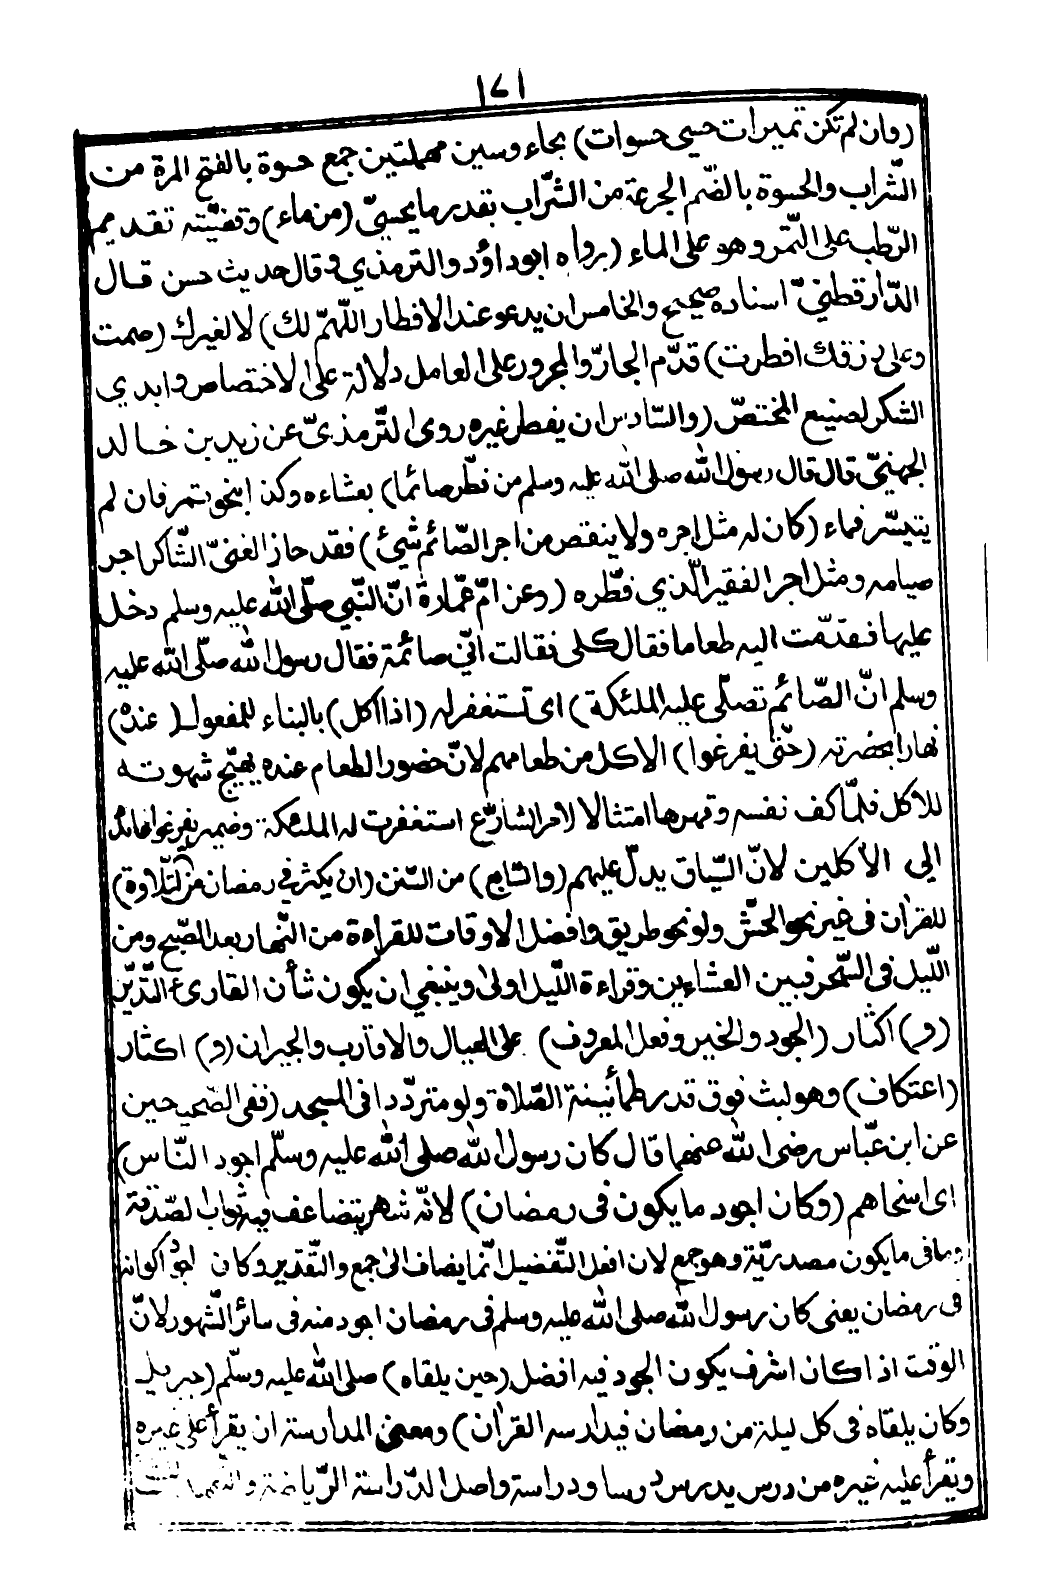 ١٧١
(وان لم تكن تميرات حسى حسوات) بحاء وسين مهملتين جمع حسوة بالفتح المرة من
الشّراب والحسوة بالضّم الجرعة من الشّراب بقدر ما يحسىّ (من ماء) وقضيّته تقديم
الرّطب على التّمر وهو على الماء (رواه ابو داؤد والترمذي) وقال حديث حسن قال
الدّارقطنيّ اسناده صحيح والخامس ان يدعو عند الافطار اللّهمّ لك) لا لغيرك (صمت
وعلى رزقك افطرت) قدّم الجارّ والمجرور على العامل دلالة على الاختصاص وابدي
الشكر لصنيع المختصّ (والسّادس ان يفطر غيره روى التّرمذيّ عن زيد بن خالد
الجهنيّ قال قال رسول الله صلى الله عليه وسلم من فطّر صائما) بعشاءه وكذا بنحو تمر فان لم
يتيسّر فماء (كان له مثل اجره ولا ينقص من اجر الصّائم شيئ) فقد حاز الغنىّ الشّاكر اجر
صيامه ومثل اجر الفقير الّذي فطّره (وعن امّ عمّارة انّ النّبي صلّى الله عليه وسلم دخل
عليها فقدّمت اليه طعاما فقال كلى فقالت انّى صائمة فقال رسول الله صلّى الله عليه
وسلم انّ الصّائم تصلّى عليه الملئكة) اى تستغفر له (اذا اكل) بالبناء للمفعول (عنده)
نهارا بحضرته (حتّى يفرغوا) الاكل من طعامهم لانّ حضور الطعام عنده يهيّج شهوته
للاكل فلمّا كف نفسه وقهرها امتثالا لامر الشارع استغفرت له الملئكة وضمير يفرغوا عائد
الى الآكلين لانّ السّياق يدلّ عليهم (والسّابع) من السّنن (ان يكثر في رمضان من التّلاوة)
للقرأن فى غير نحو الحشّ ولو نحو طريق وافضل الاوقات للقراءة من النّهار بعد الصّبح ومن
اللّيل فى السّحر فبين العشاءين وقراءة اللّيل اولى وينبغي ان يكون شأن القارئ التّدبّر
(و) اكثار (الجود والخير وفعل المعروف) على العيال والاقارب والجيران (و) اكثار
(اعتكاف) وهو لبث فوق قدر طمأنينة الصّلاة ولو متردّدا فى المسجد (ففى الصّحيحين
عن ابن عبّاس رضى الله عنهما قال كان رسول الله صلى الله عليه وسلّم اجود النّاس)
اى اسخاهم (وكان اجود ما يكون فى رمضان) لانّه شهر يتضاعف فيه ثواب الصّدقة
وما فى ما يكون مصدريّة وهو جمع لان افعل التّفضيل انّما يضاف الى جمع والتّقدير وكان اجود اكوانه
فى رمضان يعنى كان رسول الله صلى الله عليه وسلم فى رمضان اجود منه فى سائر الشّهور لانّ
الوقت اذا كان اشرف يكون الجود فيه افضل (حين يلقاه) صلى الله عليه وسلّم (جبريل
وكان يلقاه فى كل ليلة من رمضان فيدارسه القرأن) ومعنى المدارسة ان يقرأ على غيره
ويقرأ عليه غيره من درس يدرس درسا ودراسة واصل الدّراسة الرّياضة